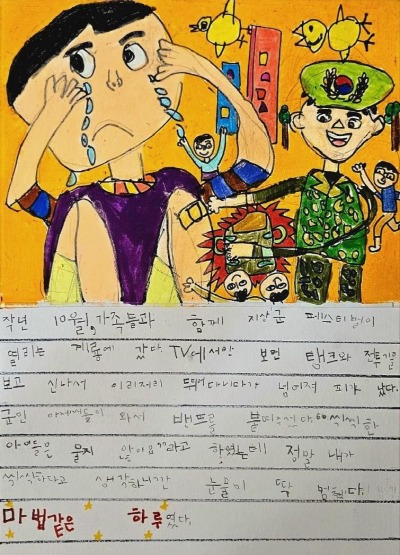 작년 10월, 가족들과 함께 지상군 페스티벌이
열리는 계룡에 갔다. TV에서만 보면 탱크와 전투기를
보고 신나서 이리저리 뛰어다니다가 넘어져 피가 났다.
군인 아저씨들이 와서 밴드를 붙여주신다. 씩씩한
아이들은 울지 않아요라고 하였는데 정말 내가
씩씩하다고 생각하니깐 눈물이 딱 멈췄다.
마법같은 하루였다.